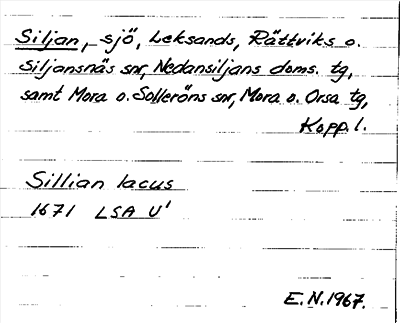 Siljan, sjö, Leksands, Rättviks o.
Siljansnäs snr, Nedansiljans doms. tg,
samt Mora o. Solleröns snr, Mora o. Orsa tg,
Kopp. l.
Sillian lacus
1671 LSA U'
E.N. 1967.